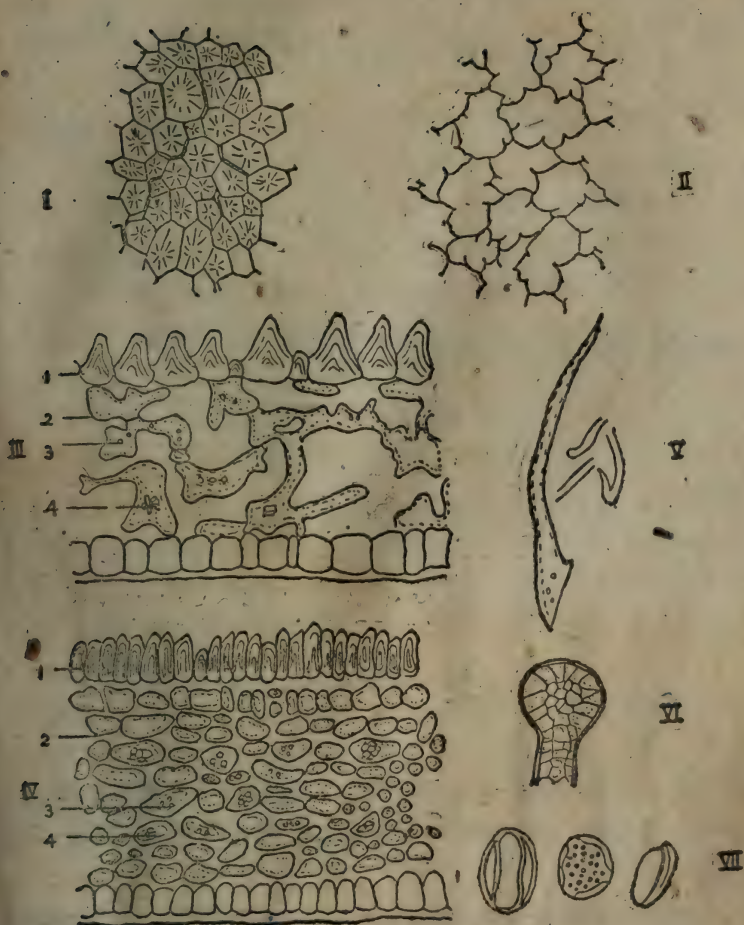 I
II
III
1
2
3
4
V
IV
1
2
3
4
VI
VII